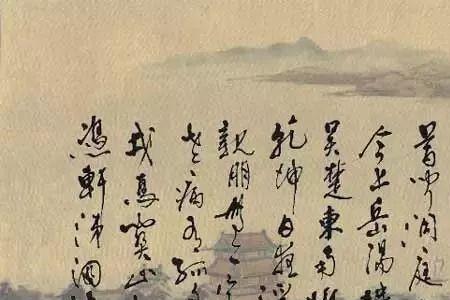 昔闻洞庭
今上岳陽
吴楚東南
乾坤日夜
親朋無一字
老病有孤
戎馬關山
憑軒涕泗